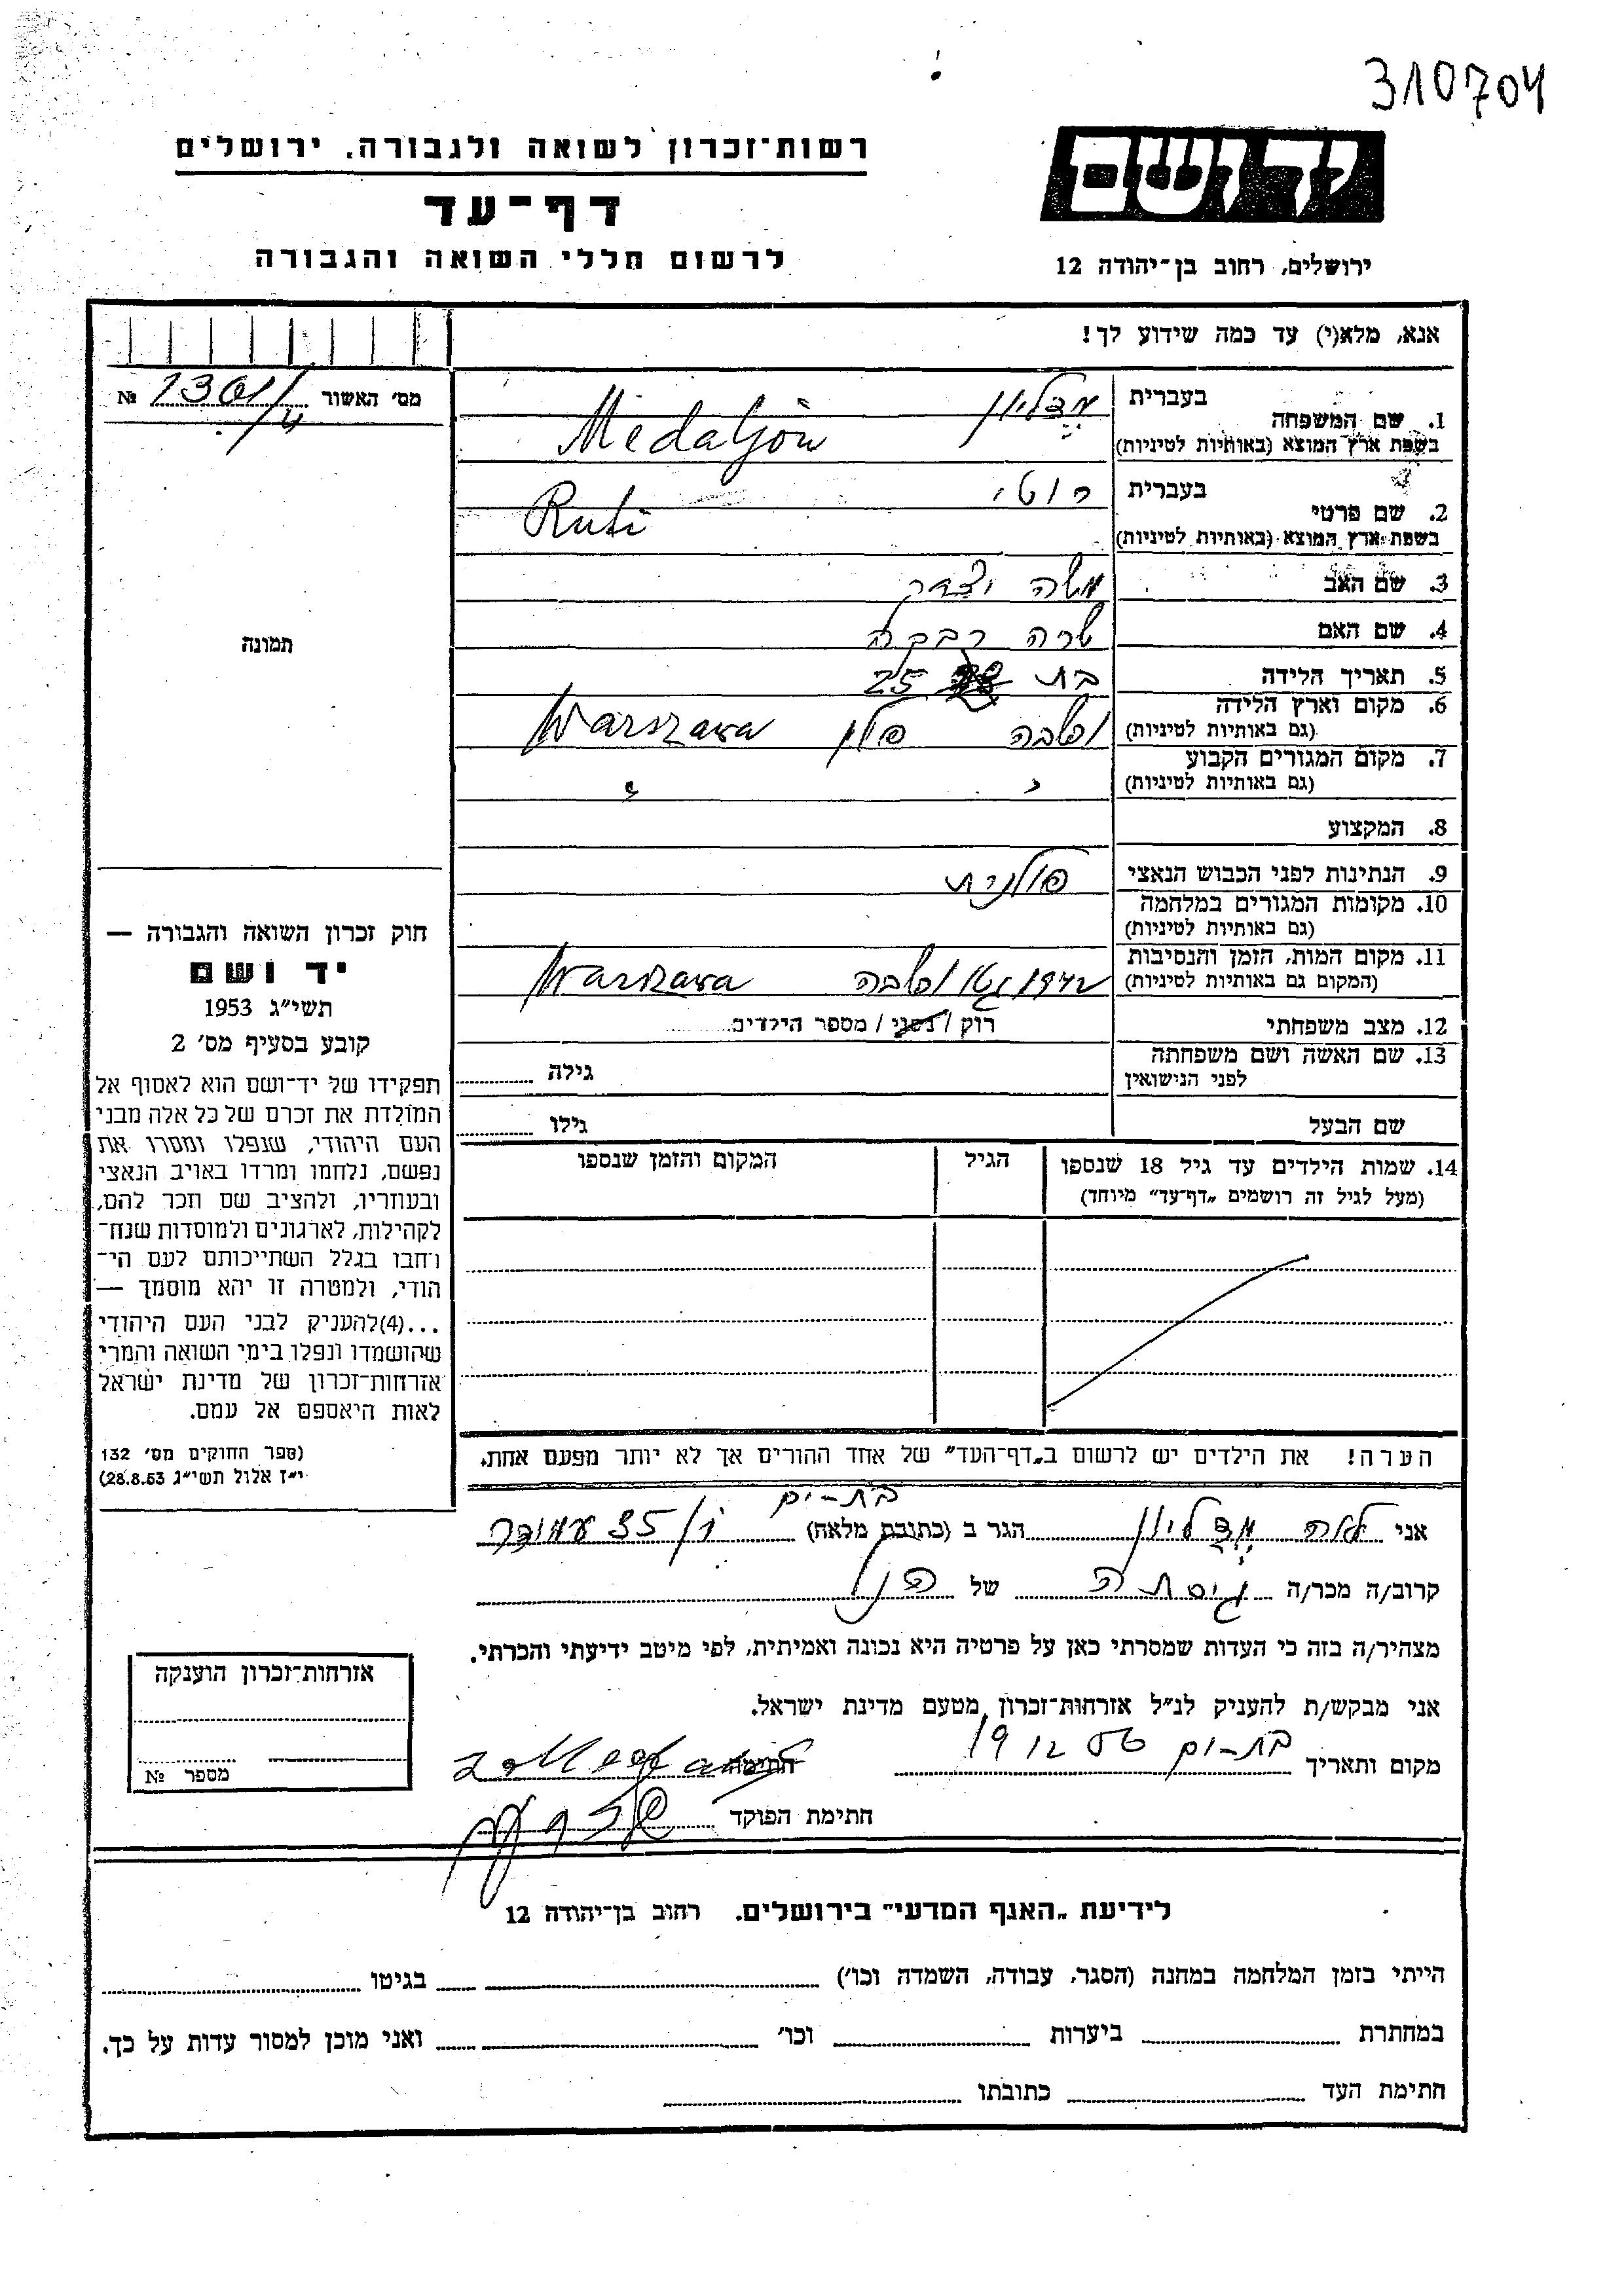 310704
רשות־זכרון לשואה ולגבורה, ירושלים
דף־עד
לרשום חללי השואה והגבורה
יד ושם
ירושלים, רחוב בן־יהודה 12
אנא, מלא(י) עד כמה שידוע לך!
מס׳ האשור № 1301/4
1. שם המשפחה
בעברית מדליון
בשפת ארץ המוצא (באותיות לטיניות) Medaljon
2. שם פרטי
בעברית רוטי
בשפת ארץ המוצא (באותיות לטיניות) Ruti
3. שם האב משה
4. שם האם שרה רבקה
5. תאריך הלידה בת 25
6. מקום וארץ הלידה ורשבה פולין Warszawa
(גם באותיות לטיניות)
7. מקום המגורים הקבוע
(גם באותיות לטיניות)
8. המקצוע
9. הנתינות לפני הכבוש הנאצי פולנית
10. מקומות המגורים במלחמה
(גם באותיות לטיניות)
11. מקום המות, הזמן והנסיבות 1942 גטו ורשבה Warszawa
(המקום גם באותיות לטיניות)
12. מצב משפחתי רוק / נשוי / מספר הילדים
13. שם האשה ושם משפחתה
לפני הנישואין
גילה
שם הבעל
גילו
14. שמות הילדים עד גיל 18 שנספו
(מעל לגיל זה רושמים „דף־עד״ מיוחד)
הגיל
המקום והזמן שנספו
הערה! את הילדים יש לרשום ב„דף־העד״ של אחד ההורים אך לא יותר מפעם אחת.
תמונה
חוק זכרון השואה והגבורה —
יד ושם
תשי״ג 1953
קובע בסעיף מס׳ 2
תפקידו של יד־ושם הוא לאסוף אל
המולדת את זכרם של כל אלה מבני
העם היהודי, שנפלו ומסרו את
נפשם, נלחמו ומרדו באויב הנאצי
ובעוזריו, ולהציב שם וזכר להם,
לקהילות, לארגונים ולמוסדות שנח־
רחבו בגלל השתייכותם לעם הי־
הודי, ולמטרה זו יהא מוסמך —
...(4)להעניק לבני העם היהודי
שהושמדו ונפלו בימי השואה והמרי
אזרחות־זכרון של מדינת ישראל
לאות היאספם אל עמם.
(ספר החוקים מס׳ 132
י״ז אלול תשי״ג 28.8.53)
בת־ים
אני לאה מדליון הגר ב (כתובת מלאה) 35
קרוב/ה מכר/ה גיסתה של הנ״ל
מצהיר/ה בזה כי העדות שמסרתי כאן על פרטיה היא נכונה ואמיתית, לפי מיטב ידיעתי והכרתי.
אני מבקש/ת להעניק לנ״ל אזרחות־זכרון מטעם מדינת ישראל.
מקום ותאריך בת־ים 19 12 56 חתימה
חתימת הפוקד
אזרחות־זכרון הוענקה
מספר №
לידיעת „האגף המדעי״ בירושלים. רחוב בן־יהודה 12
הייתי בזמן המלחמה במחנה (הסגר, עבודה, השמדה וכו׳) בגיטו
במחתרת ביערות וכו׳ ואני מוכן למסור עדות על כך.
חתימת העד כתובתו